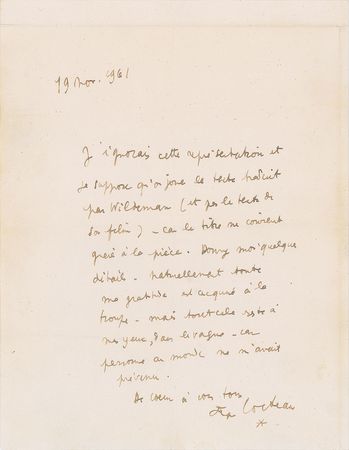 19 nov. 1961
J'ignorais cette représentation et
je suppose qu'on joue le texte traduit
par Wildeman (et pas le texte de
son film) - car le titre ne convient
guère à la pièce. Donnez moi quelque
détails - naturellement toute
ma gratitude est acquise à la
troupe - mais tout cela reste à
mes yeux, dans le vague - car
personne au monde ne m'avait
prévenu.
De cœur à vous tous
Jean Cocteau
*